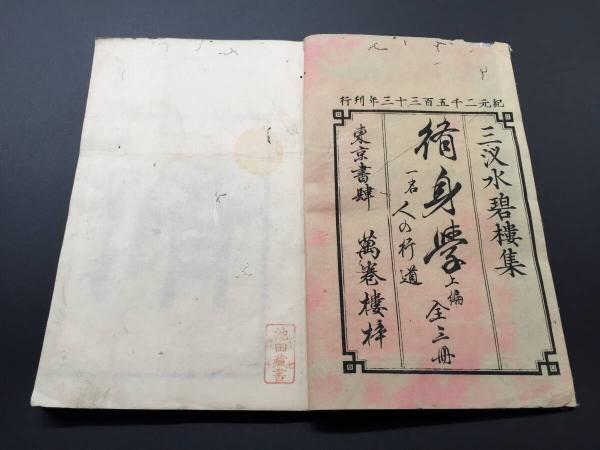 紀元二千五百三十三年刊行
三汊水碧樓集
脩身學 上編 全三冊
一名 人の行道
東京書肆 萬卷樓梓
池田
藏書